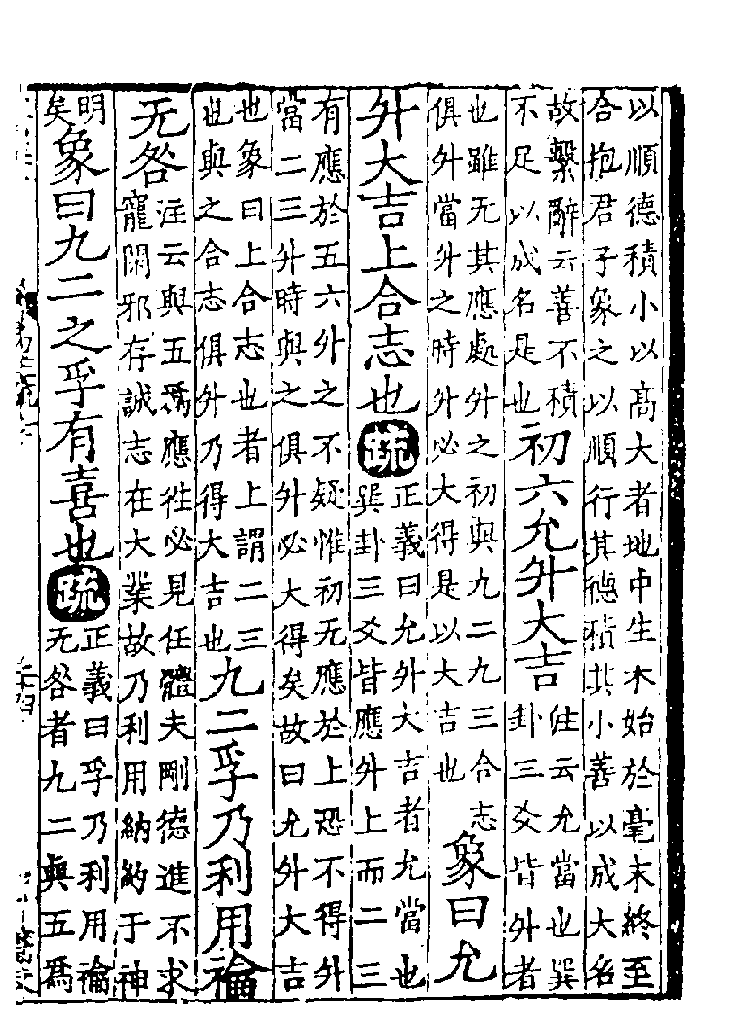 以順德積小以髙大者地中生木始於毫末終至
合抱君子象之以順行其德積其小善以成大名
故繫辭云善不積
不足以成名是也
初六允升大吉
注云允當也巽
卦三爻皆升者
也雖无其應處升之初與九二九三合志
俱升當升之時升必大得是以大吉也
象曰允
升大吉上合志也
疏
正義曰允升大吉者允當也
巽卦三爻皆應升上而二三
有應於五六升之不疑惟初无應於上恐不得升
當二三升時與之俱升必大得矣故曰允升大吉
也象曰上合志也者上謂二三
也與之合志俱升乃得大吉也
九二孚乃利用禴
无咎
注云與五爲應徃必見任體夫剛德進不求
寵閑邪存誠志在大業故乃利用納約于神
明
矣
象曰九二之孚有喜也
疏
正義曰孚乃利用禴
无咎者九二與五爲